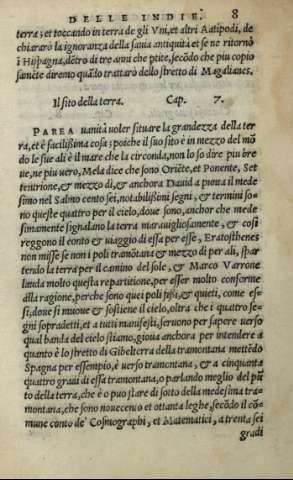 DELLE INDIE. 8
terra; et toccando in terra de gli Vni, et altri Antipodi, de
chiararò la ignoranza della sauia antiquità et se ne ritornò
i Hispagna, détro di tre anni che ptite, secódo che piu copio
saméte diremo quãdo trattarò dello stretto di Magalianes.
Il sito della terra. Cap. 7.
PAREA uanità uoler situare la grandezza della ter
ra, et è facilissima cosa; poiche il suo sito è in mezzo del mõ
do le sue ali è il mare che la circonda, non lo so dire piu bre
ue, ne piu uero, Mela dice che sono Oriéte, et Ponente, Set
tentrione, & mezzo dì, & anchora Dauid a punta il mede
simo nel Salmo cento sei, notabilissimi segni, & termini so-
no queste quattro per il cielo, doue sono, anchor che mede
simamente signalano la terra marauigliosamente, & così
reggono il conto & uiaggio di essa per esse, Eratosthenes
non misse se non i poli tramõtana & mezzo dì per ali, spar
tendo la terra per il camino del sole, & Marco Varrone
lauda molto questa repartitione, per esser molto conforme
alla ragione, perche sono quei poli fissi, & quieti, come es-
si, doue si muoue & sostiene il cielo, oltra che i quattro se-
gni sopradetti, et a tutti manifesti, seruono per sapere uerso
qual banda del cielo stiamo, gioua anchora per intendere a
quanto è lo stretto di Gibelterra della tramontana mettédo
Spagna per essempio, è uerso tramontana, & a cinquanta
quattro graui di essa tramontana, o parlando meglio del pũ
to della terra, che è o puo stare di sotto della medesima tra-
montana, che sono nouecento et ottanta leghe, secódo il có-
mune conto de' Cosmographi, et Matematici, a trenta sei
gradi